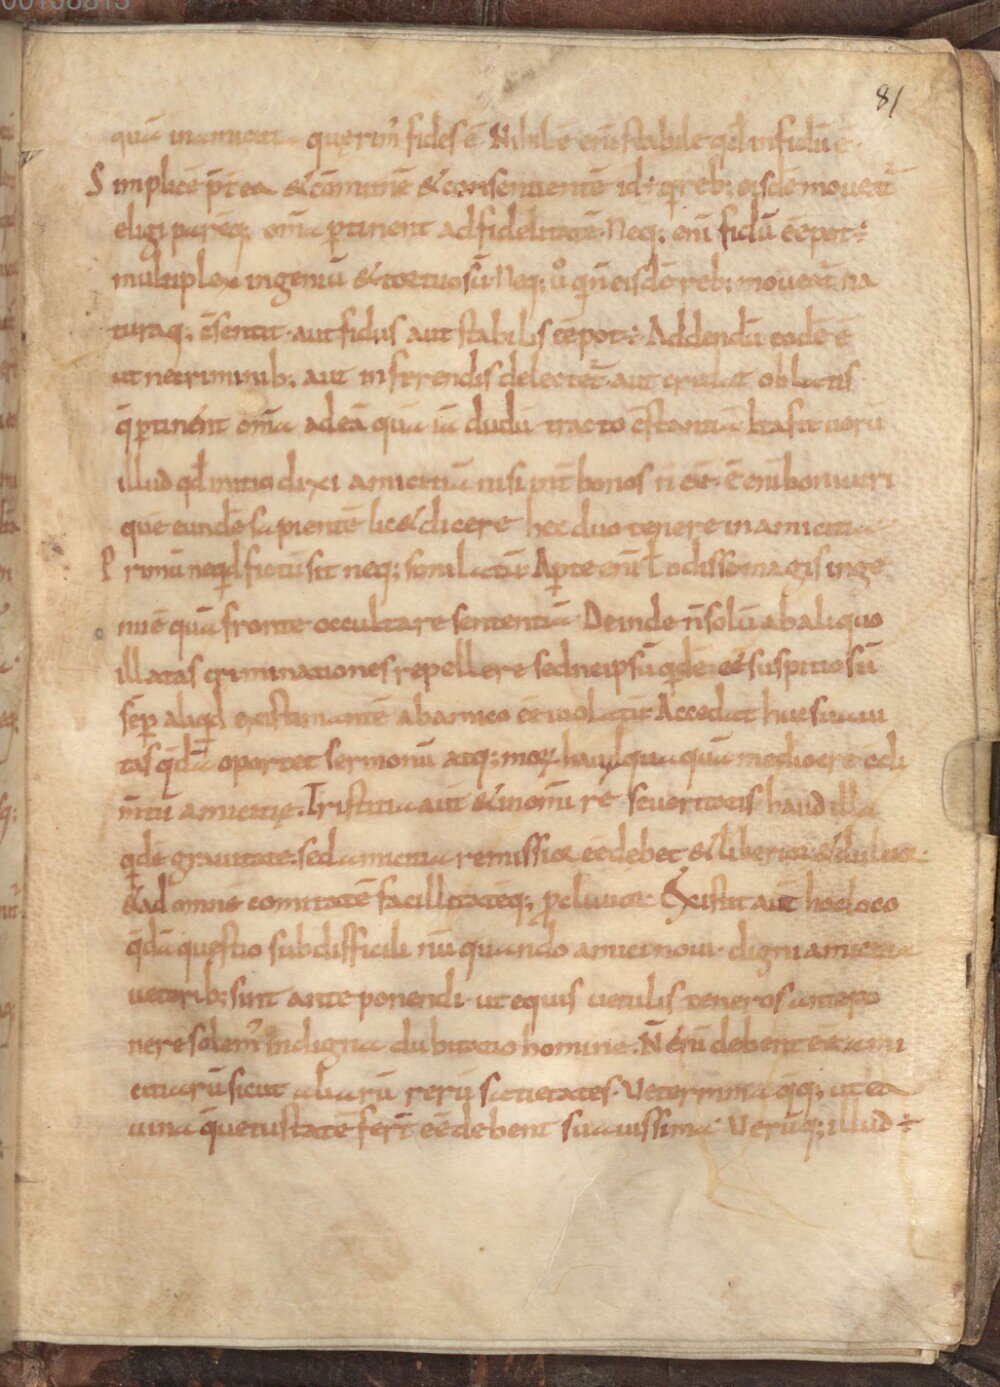 81
quā in amicitia quęrim᷒ fides ē. Nihil ē enī stabile qd̄ infidū ē.
Simplicē p̄t ea & cōmunē & consentientē id ÷ q̄ reb; eisdē moveat̄
eligi par eq; om̄a ꝑtinent ad fidelitatē. Neq; enī fidū ēē pot ÷
multiplex ingeniū & tortuosū. Neq; ů qi n̄ eisdē reb; moveat̄ na
turaq; c̄sentit. aut fidus aut stabilis ēē pot ÷. Addendū eodē ē
ut ne criminib; aut inferrendis delectet̄. aut credat oblatis
q̄ ꝑtinent om̄a ad eā quā iā dudū tracto c̄stantiā Ita fit verū
illud qd̄ initio dixi amicitiā nisi int̄ bonos ñ eē. ē enī boni viri
quē eundē sapientē lic& dicere hec duo tenere in amicitia
Primū neqd̄ fictū sit neq; similatū. Aꝑte enī ł odisse magis inge
nuē quā fronte occultare sententiā. Deinde ñ solū ab aliquo
illatas criminationes repellere sed ne ipsū q̄dē eē suspitiosū
sēꝑ aliqd̄ existimantē ab amico eē violatū. Accedat huc suavi
tas q̄dā oportet sermonū atq; moꝝ haudquaquā mediocre cōdi
m̄tū amicitię. Tristitia aut & in om̄i re severitatis haud illa
q̄dē gravitatē. sed amicitia remissior eē debet & liberior & dulcior.
& ad omnē comitatē facillitatēq; ꝓclivior. Existit aut̄ hoc loco
q̄dā questio subdifficili nū quando amici novi. digni amicitia
veterib; sint anteponendi. ut equis vetulis teneros antepo
nere solem᷒ indigna dubitatio homine. Ñ enī debent eē ami
citiarū sicut aliarū rerū satietates. Veterrima q̄q; ut ea
vina q̄ vetustatē fer̄t eē debent suavissima. Verūq; illud ÷